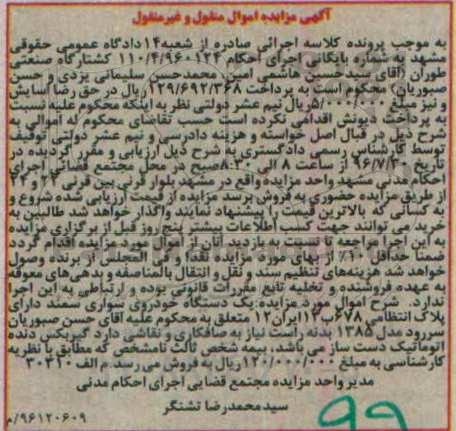 آگهی مزایده اموال منقول و غیرمنقول
به موجب پرونده کلاسه اجرائی صادره از شعبه ۱۴ دادگاه عمومی حقوقی
مشهد به شماره بایگانی اجرای احکام ۱۱۰/۴/۹۶۰۱۲۴ کشتارگاه صنعتی
طوران (آقای سیدحسین هاشمی امین، محمدحسن سلیمانی یزدی و حسن
صبوریان) محکوم است به پرداخت ۱۲۹/۶۹۲/۳۶۸ ریال در حق رضا آسایش
و نیز مبلغ ۵/۰۰۰/۰۰۰ ریال نیم عشر دولتی نظر به اینکه محکوم علیه نسبت
به پرداخت دیونش اقدامی نکرده است حسب تقاضای محکوم له اموالی به
شرح ذیل در قبال اصل خواسته و هزینه دادرسی و نیم عشر دولتی توقیف
توسط کارشناس رسمی دادگستری به شرح ذیل ارزیابی و مقرر گردیده در
تاریخ ۹۶/۷/۳۰ از ساعت ۸ الی ۸:۳۰ صبح در محل مجتمع قضائی اجرای
احکام مدنی مشهد واحد مزایده واقع در مشهد بلوار قرنی بین قرنی ۲۲ و ۲۴
از طریق مزایده حضوری به فروش برسد مزایده از قیمت ارزیابی شده شروع و
به کسانی که بالاترین قیمت را پیشنهاد نمایند واگذار خواهد شد طالبین به
خرید می توانند جهت کسب اطلاعات بیشتر پنج روز قبل از برگزاری مزایده
به این اجرا مراجعه تا نسبت به بازدید آنان از اموال مورد مزایده اقدام گردد
ضمنا حداقل ۱۰٪ از بهای مورد مزایده نقدا و فی المجلس از برنده وصول
خواهد شد هزینه‌های تنظیم سند و نقل و انتقال بالمناصفه و بدهی های معوقه
به عهده فروشنده و تخلیه تابع مقررات قانونی بوده و ارتباطی به این اجرا
ندارد. شرح اموال مورد مزایده: یک دستگاه خودروی سواری سمند دارای
پلاک انتظامی ۶۷۸ب۱۳ ایران۱۲ متعلق به محکوم علیه آقای حسن صبوریان
سررود مدل ۱۳۸۵ بدنه راست نیاز به صافکاری و نقاشی دارد گیربکس دنده
اتوماتیک دست ساز می باشد، بیمه شخص ثالث نامشخص که مطابق با نظریه
کارشناسی به مبلغ ۱۲۰/۰۰۰/۰۰۰ ریال به فروش می رسد. م الف ۳۰۳۱۰
مدیر واحد مزایده مجتمع قضایی اجرای احکام مدنی
سیدمحمدرضا تشنگر
۹۶۱۲۰۶۰۹/م
99